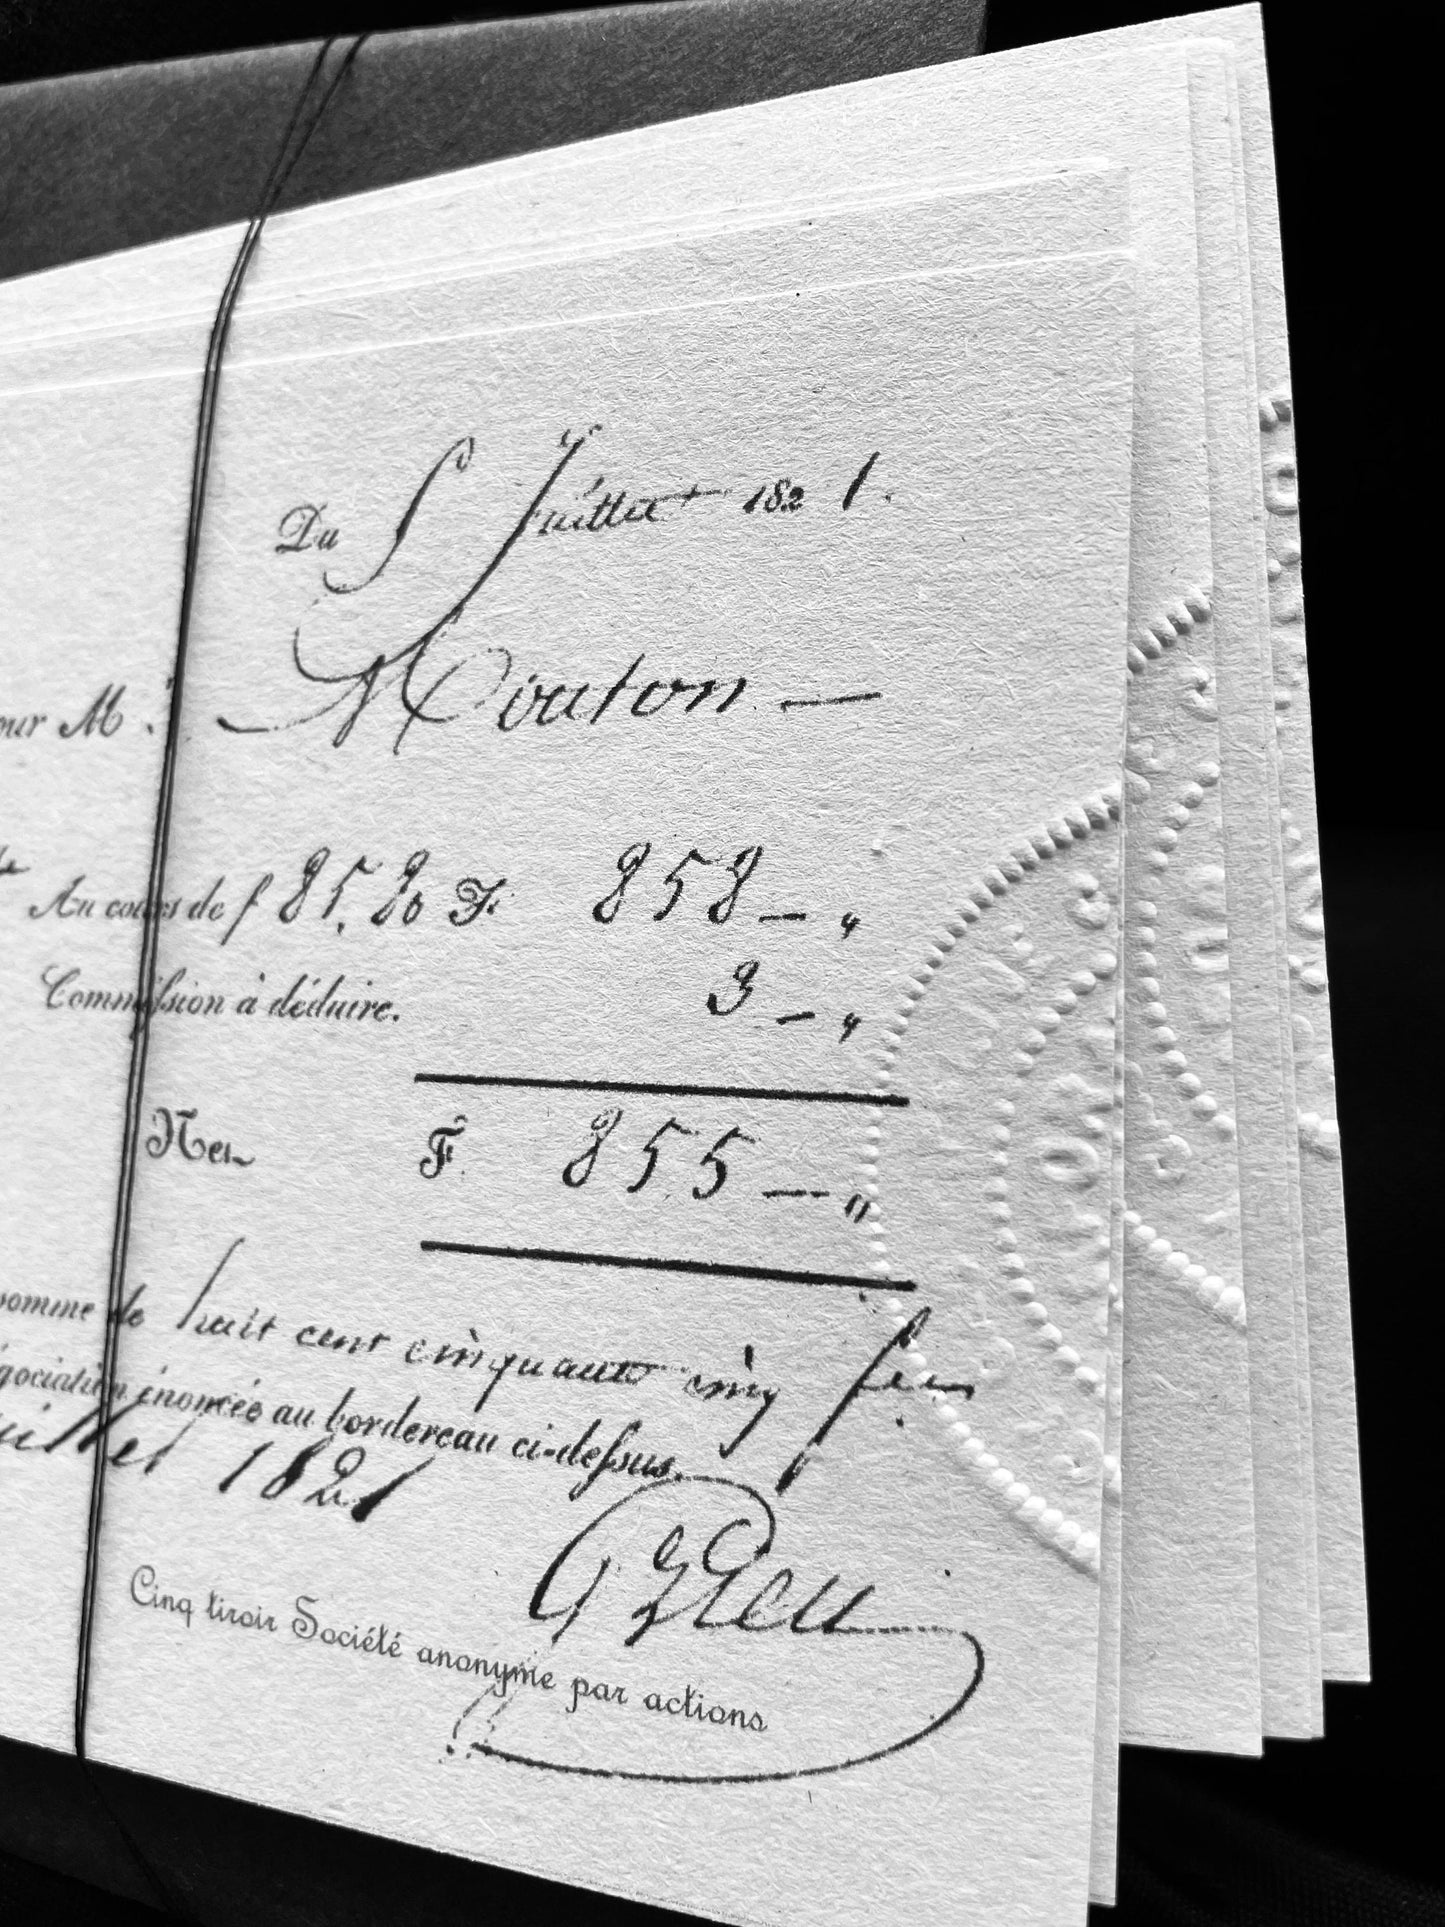 Du 5 Juillet 1821.
our M. Mouton —
Au cours de f 85,80 F. 858 — "
Commission à déduire. 3 — "
Net F. 855 — "
somme de huit cent cinquante cinq
négociation énoncée au bordereau ci-dessus.
juillet 1821
Cinq tiroir Société anonyme par actions